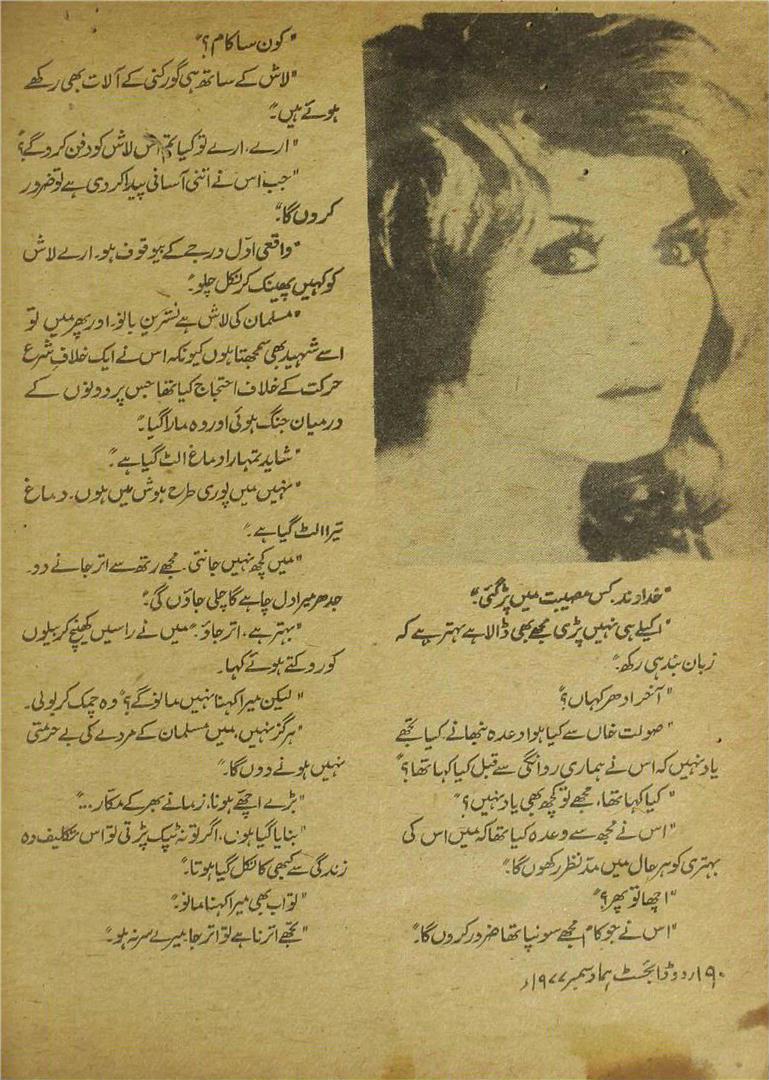 "خداوند، کس مصیبت میں پڑ گئی۔"
"اکیلے ہی نہیں پڑی مجھے بھی ڈالا ہے بہتر ہے کہ
زبان بند ہی رکھ۔"
"آخر ادھر کہاں؟"
"صولت خاں سے کیا ہوا وعدہ نبھانے، کیا تجھے
یاد نہیں کہ اس نے ہماری روانگی سے قبل کیا کہا تھا؟"
"کیا کہا تھا، مجھے تو کچھ بھی یاد نہیں؟"
"اس نے مجھ سے وعدہ کیا تھا کہ میں اس کی
بہتری کو ہر حال میں مدّ نظر رکھوں گا۔"
"اچھا تو پھر؟"
"اس نے جو کام مجھے سونپا تھا ضرور کروں گا۔"
"کون سا کام؟"
"لاش کے ساتھ ہی گورکنی کے آلات بھی رکھے
ہوئے ہیں۔"
"ارے، ارے تو کیا تم اس لاش کو دفن کرو گے؟
"جب اس نے اتنی آسانی پیدا کر دی ہے تو ضرور
کروں گا۔"
"واقعی اوّل درجے کے بیوقوف ہو۔ ارے لاش
کو کہیں پھینک کر نکل چلو۔"
"مسلمان کی لاش ہے نسترین بانو۔ اور پھر میں تو
اسے شہید بھی سمجھتا ہوں کیونکہ اس نے ایک خلافِ شرع
حرکت کے خلاف احتجاج کیا تھا جس پر دونوں کے
درمیان جنگ ہوئی اور وہ مارا گیا۔"
"شاید تمہارا دماغ الٹ گیا ہے۔"
"نہیں میں پوری طرح ہوش میں ہوں۔ دماغ
تیرا الٹ گیا ہے۔"
"میں کچھ نہیں جانتی۔ مجھے رتھ سے اتر جانے دو۔
جدھر میرا دل چاہے گا چلی جاؤں گی۔"
"بہتر ہے، اتر جاؤ۔" میں نے راسیں کھینچ کر بیلوں
کو روکتے ہوئے کہا۔
"لیکن میرا کہنا نہیں مانو گے؟" وہ چمک کر بولی۔
"ہرگز نہیں، میں مسلمان کے مردے کی بے حرمتی
نہیں ہونے دوں گا۔"
"بڑے اچھے ہونا، زمانے بھر کے مکّار...."
"بنایا گیا ہوں، اگر تو نہ ٹپک پڑتی تو اس تکلیف دہ
زندگی سے کبھی کا نکل گیا ہوتا۔"
"تو اب بھی میرا کہنا مانو۔"
"تجھے اترنا ہے تو اتر جا میرے سر نہ ہو۔"
۱۹۰ اردو ڈائجسٹ ہما دسمبر ۱۹۷۷ء